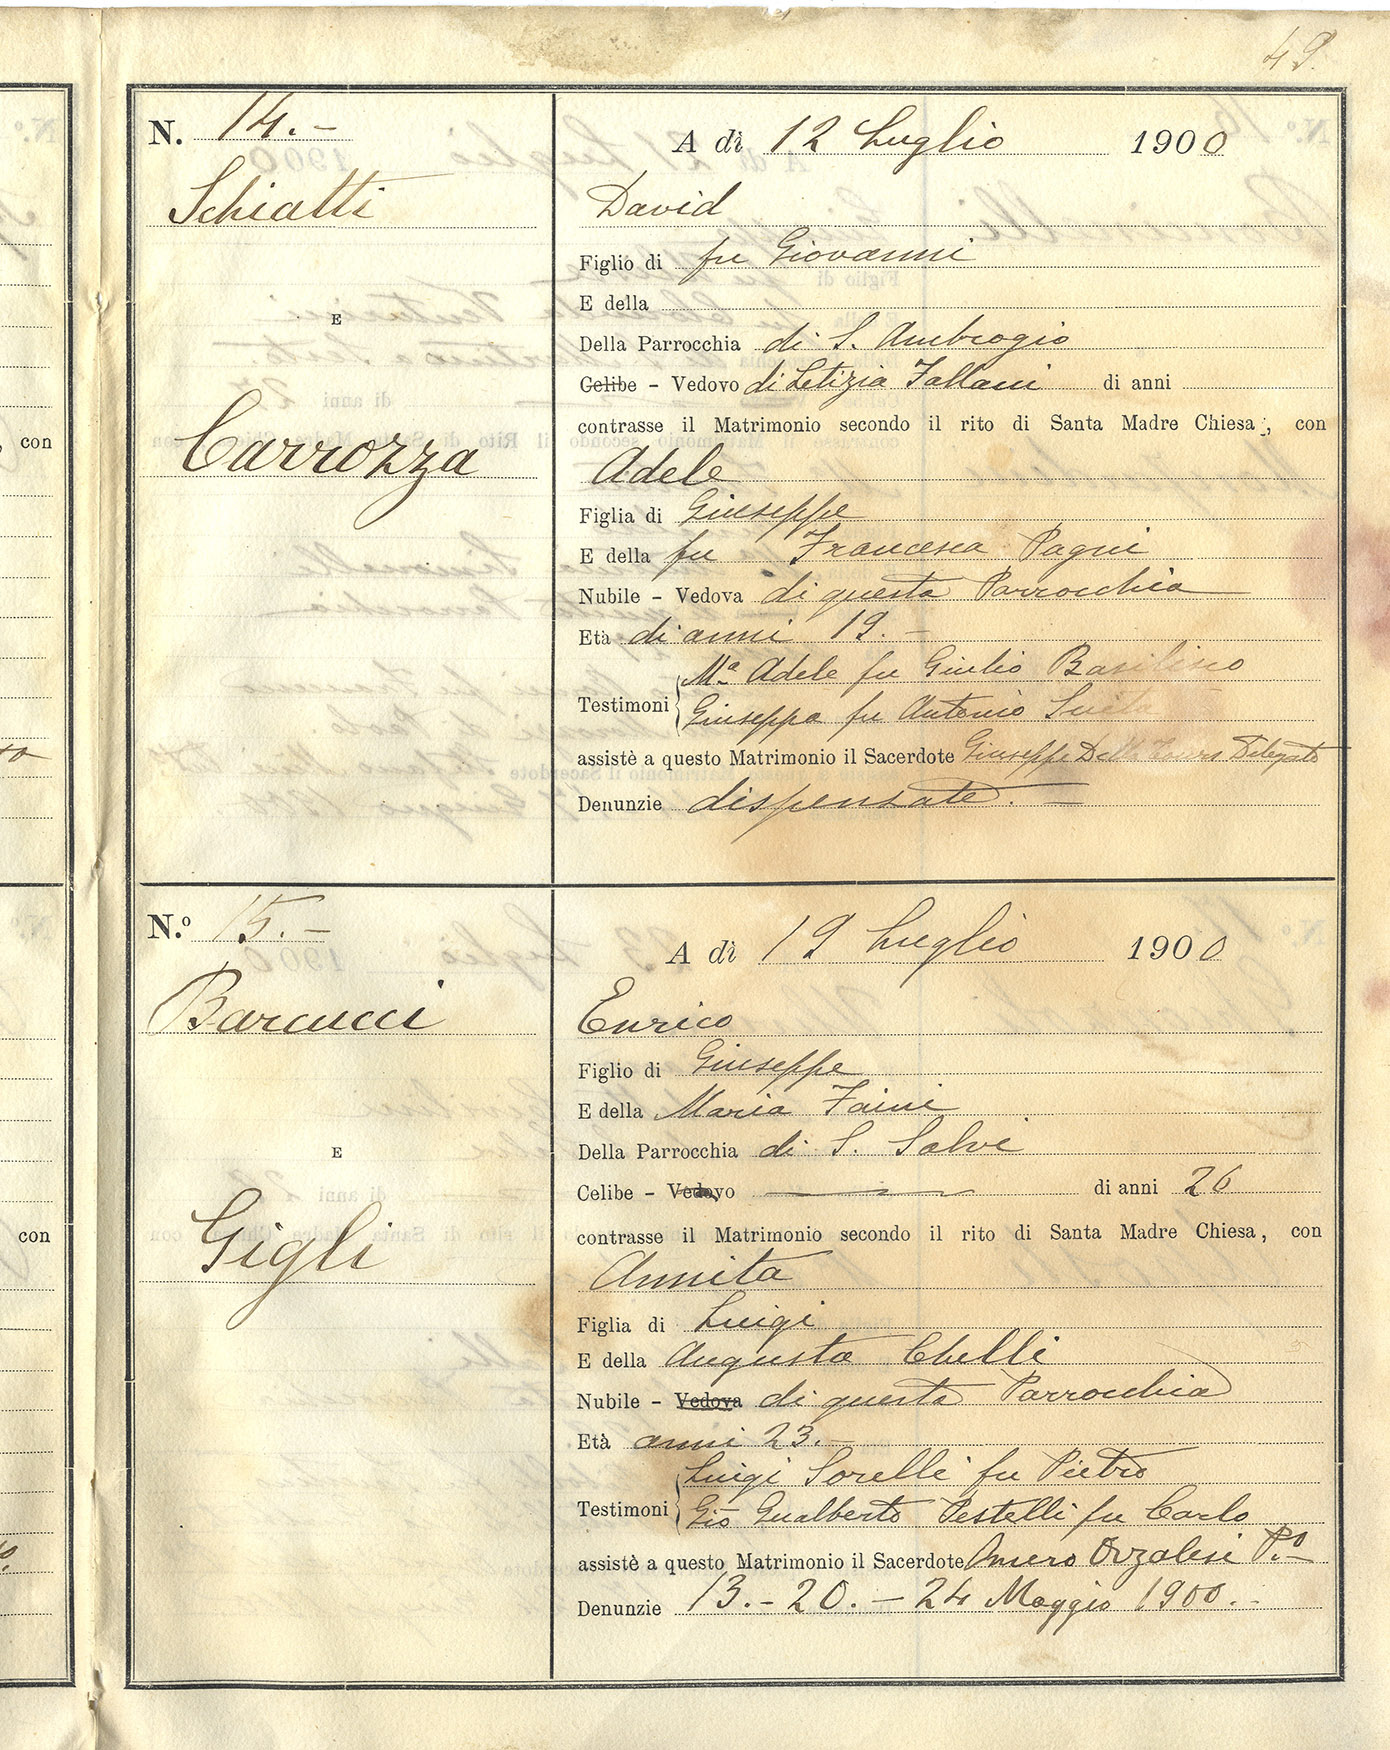 49.
N. 14.-
Schiatti
E
Carrozza
A dì 12 Luglio 1900
David
Figlio di fu Giovanni
E della
Della Parrocchia di S. Ambrogio
Celibe - Vedovo di Letizia Fallani di anni
contrasse il Matrimonio secondo il rito di Santa Madre Chiesa, con
Adele
Figlia di Giuseppe
E della fu Francesca Pagni
Nubile - Vedova di questa Parrocchia
Età di anni 19.-
Testimoni Mª Adele fu Giulio Basilisco
Giuseppa fu Antonio
assistè a questo Matrimonio il Sacerdote Giuseppe Delegato
Denunzie dispensate.-
N.º 15.-
Barcucci
E
Gigli
A dì 19 Luglio 1900
Enrico
Figlio di Giuseppe
E della Maria Faini
Della Parrocchia di S. Salvi
Celibe - Vedovo di anni 26
contrasse il Matrimonio secondo il rito di Santa Madre Chiesa, con
Annita
Figlia di Luigi
E della Augusta Chelli
Nubile - Vedova di questa Parrocchia
Età anni 23.-
Testimoni Luigi Sorelli fu Pietro
Gio Gualberto Pestelli fu Carlo
assistè a questo Matrimonio il Sacerdote Orzalesi P.º
Denunzie 13.- 20.- 24 Maggio 1900.-
con
con